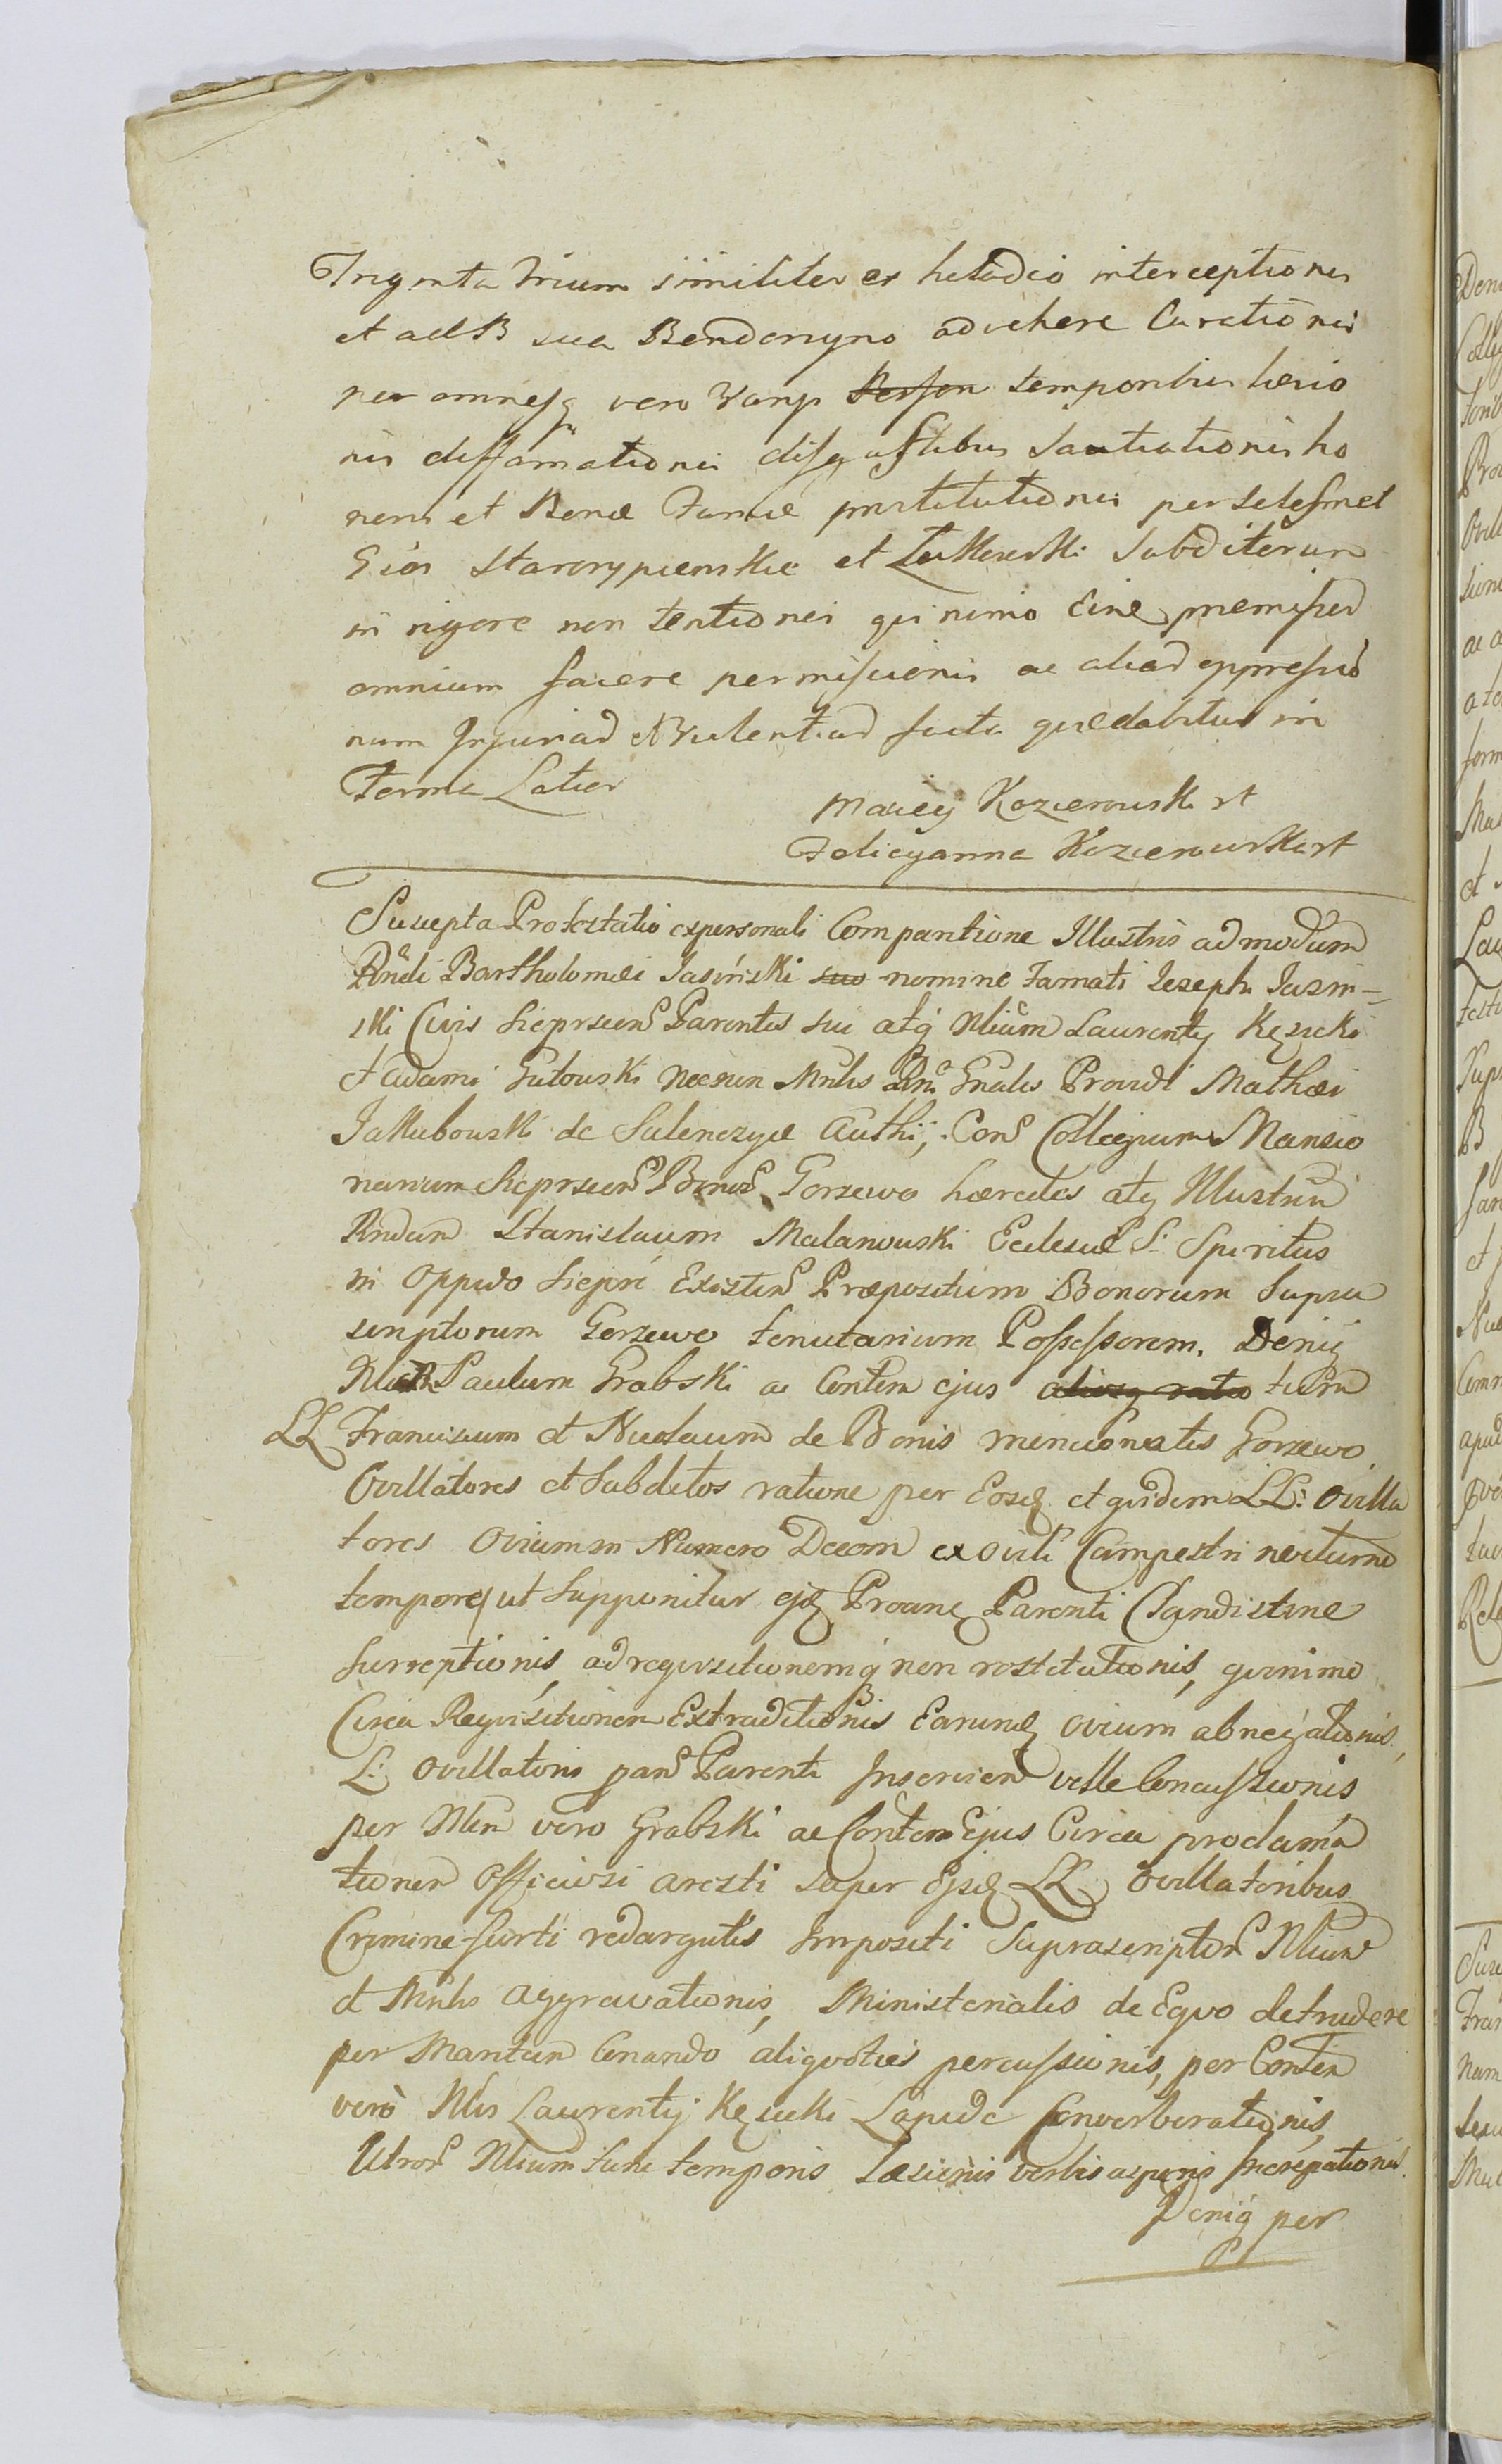 Triginta trium similiter ex hetadio interceptionis
et ad B sua Bendorzyno advehere Curationis
per omnesq vero Vanys Person temporibus læsio
nis diffamationis disgustibus Sautiationis ho
noris et Bonæ Famæ prostitutionis per
Starorypienskie et Lutkowski Subditorum
in rigore non tentionis qui nimo Eine præmissed
omnium facere permissionis ac aliad oppressio
num Injuriad et Violentiad facta quæ dabitur in
Forma Latior
Maciey Kozierowski rt
Felicyanna Kozierowska rt
Suscepta Protestatio ex personali Comparitione Illustris admodum
Rndi Bartholomæi Jasiński suo nomine Famati Joseph Jasin-
ski Civis Sieprscens Parentis sui atq Nlium Laurenty Kęsicki
et Adami Gutowski Necnon Mnlis Rni Gnalis Providi Mathæi
Jakubowski de Sulenczyce Authi; Cons Collegium Mansio
nariorum Sieprscens Bonor Gorzewo hæredes atq Illustrem
Rndum Stanislaum Malanowski Eclesiæ S: Spiritus
in Oppido Sieprc Existens Præpositum Bonorum Supra
scriptorum Gorzewo tenutarium Possessorem. Deniq
Paulum Grabski ac Contem ejus aliosq ratio tum
LL Franciscum et Nicolaum de Bonis mentionatis Gorzewo
Ovillatores et Subditos ratione per Eosd et quidem LL: Ovilla
tores Ovium in Numero Decem ex ovili Campestri nocturno
tempore ut Supponitur ejd Proane Parenti Clandistine
Surreptionis, ad requisitionemq non restitutionis, quinimo
Circa Requisitionem Extraditionis Earund ovium abnegationis,
L: ovillatoris pans Parenti Inservien velle Concussionis
per Nlem vero Grabski ac Contem Ejus Circa proclama
tionem Officiosi aresti super Ejsd LL ovillatoribus
Crimine furti redargutis Impositi Suprascriptor Nlium
et Mnlis aggravationis, Ministerialis de Equo detrudere
per Maritum Conando aliquoties percussionis, per Contem
vero Nlis Laurentij Kęsicki Lapide Converberationis,
Utror Nlium tunc temporis Læsionis verbis asperis Increpationis.
Deniq per